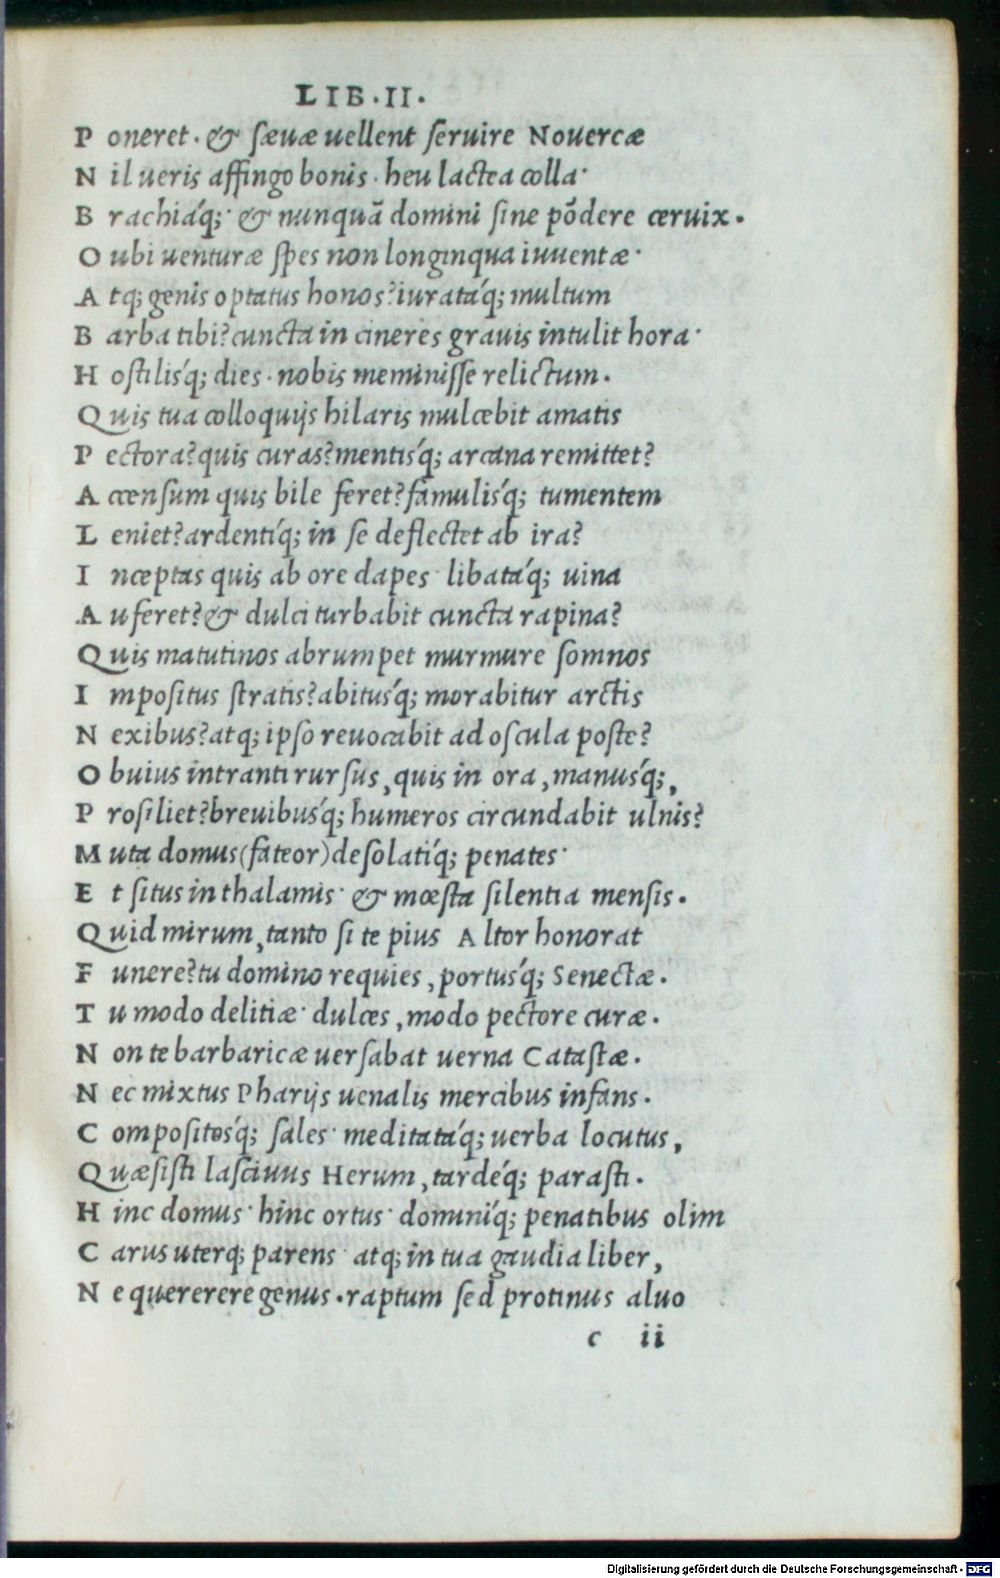 LIB·II·
P oneret· & sævæ vellent servire Novercæ
N il veris affingo bonis· heu lactea colla·
B rachiáq;· & nunquā domini sine pōdere cervix·
O ubi venturæ spes non longinqua iuventæ·
A tq; genis optatus honos? iuratáq; multum
B arba tibi? cuncta in cineres gravis intulit hora·
H ostilisq́; dies· nobis meminisse relictum·
Q uis tua colloquijs hilaris mulcebit amatis
P ectora? quis curas? mentisq́; arcana remittet?
A ccensum quis bile feret? famulisq́; tumentem
L eniet? ardentiq́; in se deflectet ab ira?
I nceptas quis ab ore dapes· libatáq; vina
A uferet? & dulci turbabit cuncta rapina?
Q uis matutinos abrumpet murmure somnos
I mpositus stratis? abitusq́; morabitur arctis
N exibus? atq; ipso revocabit ad oscula poste?
O bvius intranti rursus, quis in ora, manusq́;,
P rosiliet? brevibusq́; humeros circundabit ulnis?
M uta domus (fateor) desolatiq́; penates·
E t situs in thalamis· & mœsta silentia mensis·
Q uid mirum, tanto si te pius Altor honorat
F unere? tu domino requies, portusq́; Senectæ·
T u modo delitiæ· dulces, modo pectore curæ·
N on te barbaricæ versabat verna Catastæ·
N ec mixtus Pharijs venalis mercibus infans·
C ompositosq́; sales· meditatáq; verba locutus,
Q uæsisti lascivus Herum, tardéq; parasti·
H inc domus· hinc ortus· dominiq́; penatibus olim
C arus uterq; parens· atq; in tua gaudia liber,
N e quererere genus· raptum sed protinus alvo
c ii
Digitalisierung gefördert durch die Deutsche Forschungsgemeinschaft - DFG